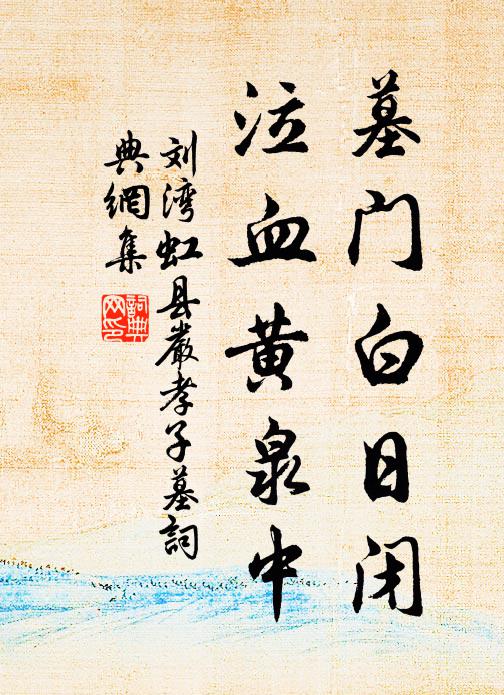 墓门白日闭
泣血黄泉中
刘湾虹县严孝子墓词
典網集
詞典
网印